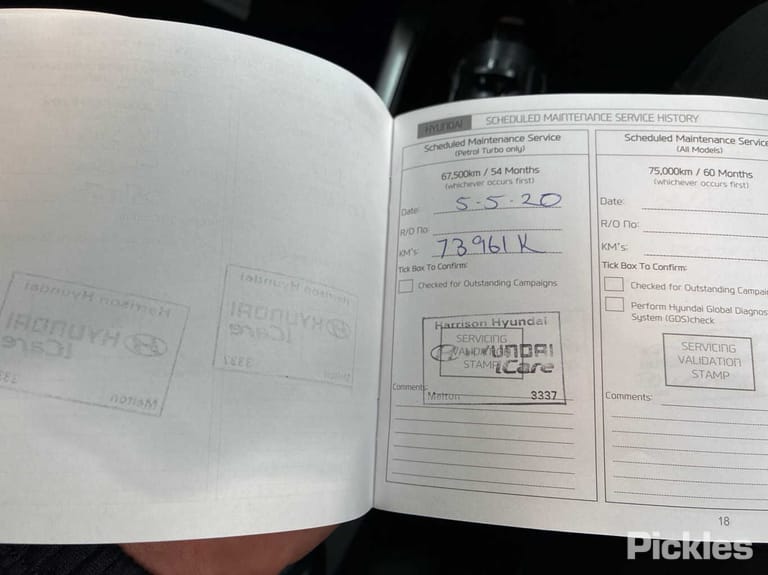 HYUNDAI SCHEDULED MAINTENANCE SERVICE HISTORY
Scheduled Maintenance Service
(Petrol Turbo only)
67,500km / 54 Months
(whichever occurs first)
Date: 5-5-20
R/O No:
KM's: 73961 K
Tick Box To Confirm:
Checked for Outstanding Campaigns
Harrison Hyundai
SERVICING
VALIDATION
STAMP
HYUNDAI
iCare
Melton 3337
Comments:
Scheduled Maintenance Service
(All Models)
75,000km / 60 Months
(whichever occurs first)
Date:
R/O No:
KM's:
Tick Box To Confirm:
Checked for Outstanding Campai
Perform Hyundai Global Diagnos
System (GDS)check
SERVICING
VALIDATION
STAMP
Comments:
18
Harrison Hyundai
HYUNDAI
iCare
3337
Melton
Harrison Hyundai
HYUNDAI
iCare
3337
Melton
Pickles